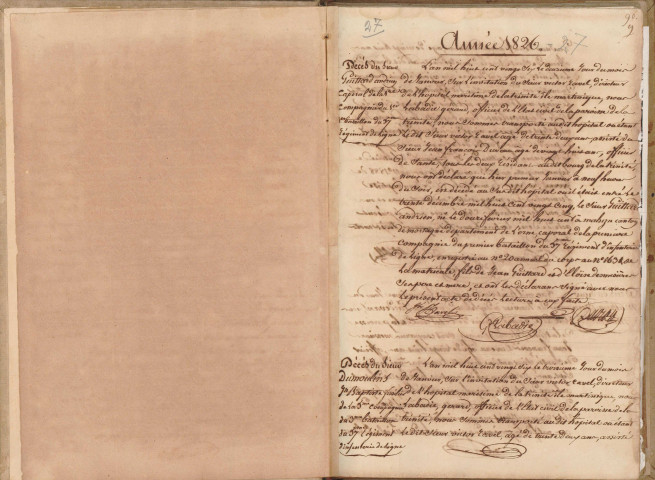 27
Année 1826
27
Décès du Sieur
Goissard andrieu
Caporal de la 1ere
Compagnie du 1er
Bataillon du 37
Régiment de Ligne
L'an mil huit cent vingt Six Le deuxieme Jour du mois
de Janvier, Sur l'invitation du Sieur victor Cavel, directeur
de l'hopital maritime de la trinité île martinique, nous
Labadie, gerard, officier de l'Etat civil de la paroisse de la
trinité, nous Sommes transporté audit hopital ou étant
le dit Sieur victor Cavel, agé de trente deux ans, assisté du
Sieur Jean françois agé de vingt huit ans, officier
de Santé, tous les deux residans audit bourg de la trinité
nous ont déclaré que hier premier Janvier à neuf heures
du Soir, est décédé au Susdit hopital ou il était entré Le
trente décembre mil huit cent vingt cinq, le Sieur
né le douze fevrier mil huit cent
departement de L'orne, caporal de la premiere
Compagnie du premier bataillon du 37me Régiment d'infanterie
de Ligne, enregistré au n°
La matricule, fils de Jean Goissard et d'
Ses pere et mere, et ont les déclarans Signé avec nous
le présent acte de décès Lecture à eux faite
Cavel
Labadie
Décès du Sieur
Dumoulens
Jn Baptiste
de la 3me Compagnie
du 3me Bataillon
du 37me Régiment
d'infanterie de Ligne
L'an mil huit cent vingt Six le troisieme Jour du mois
de Janvier, Sur l'invitation du Sieur victor Cavel, directeur
de l'hopital maritime de la trinité île martinique, nous
Labadie, gerard, officier de l'Etat civil de la paroisse de la
trinité, nous Sommes transporté audit hopital ou étant
le dit Sieur victor Cavel, agé de trente deux ans, assisté